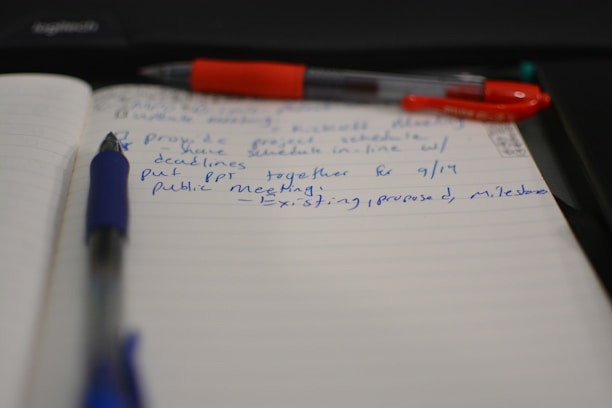 logitech
update meeting
- Kickoff Meeting
provide project schedule
- share schedule in-line w/
deadlines
put ppt together for 9/14
public meeting:
- Existing, proposed, milestone